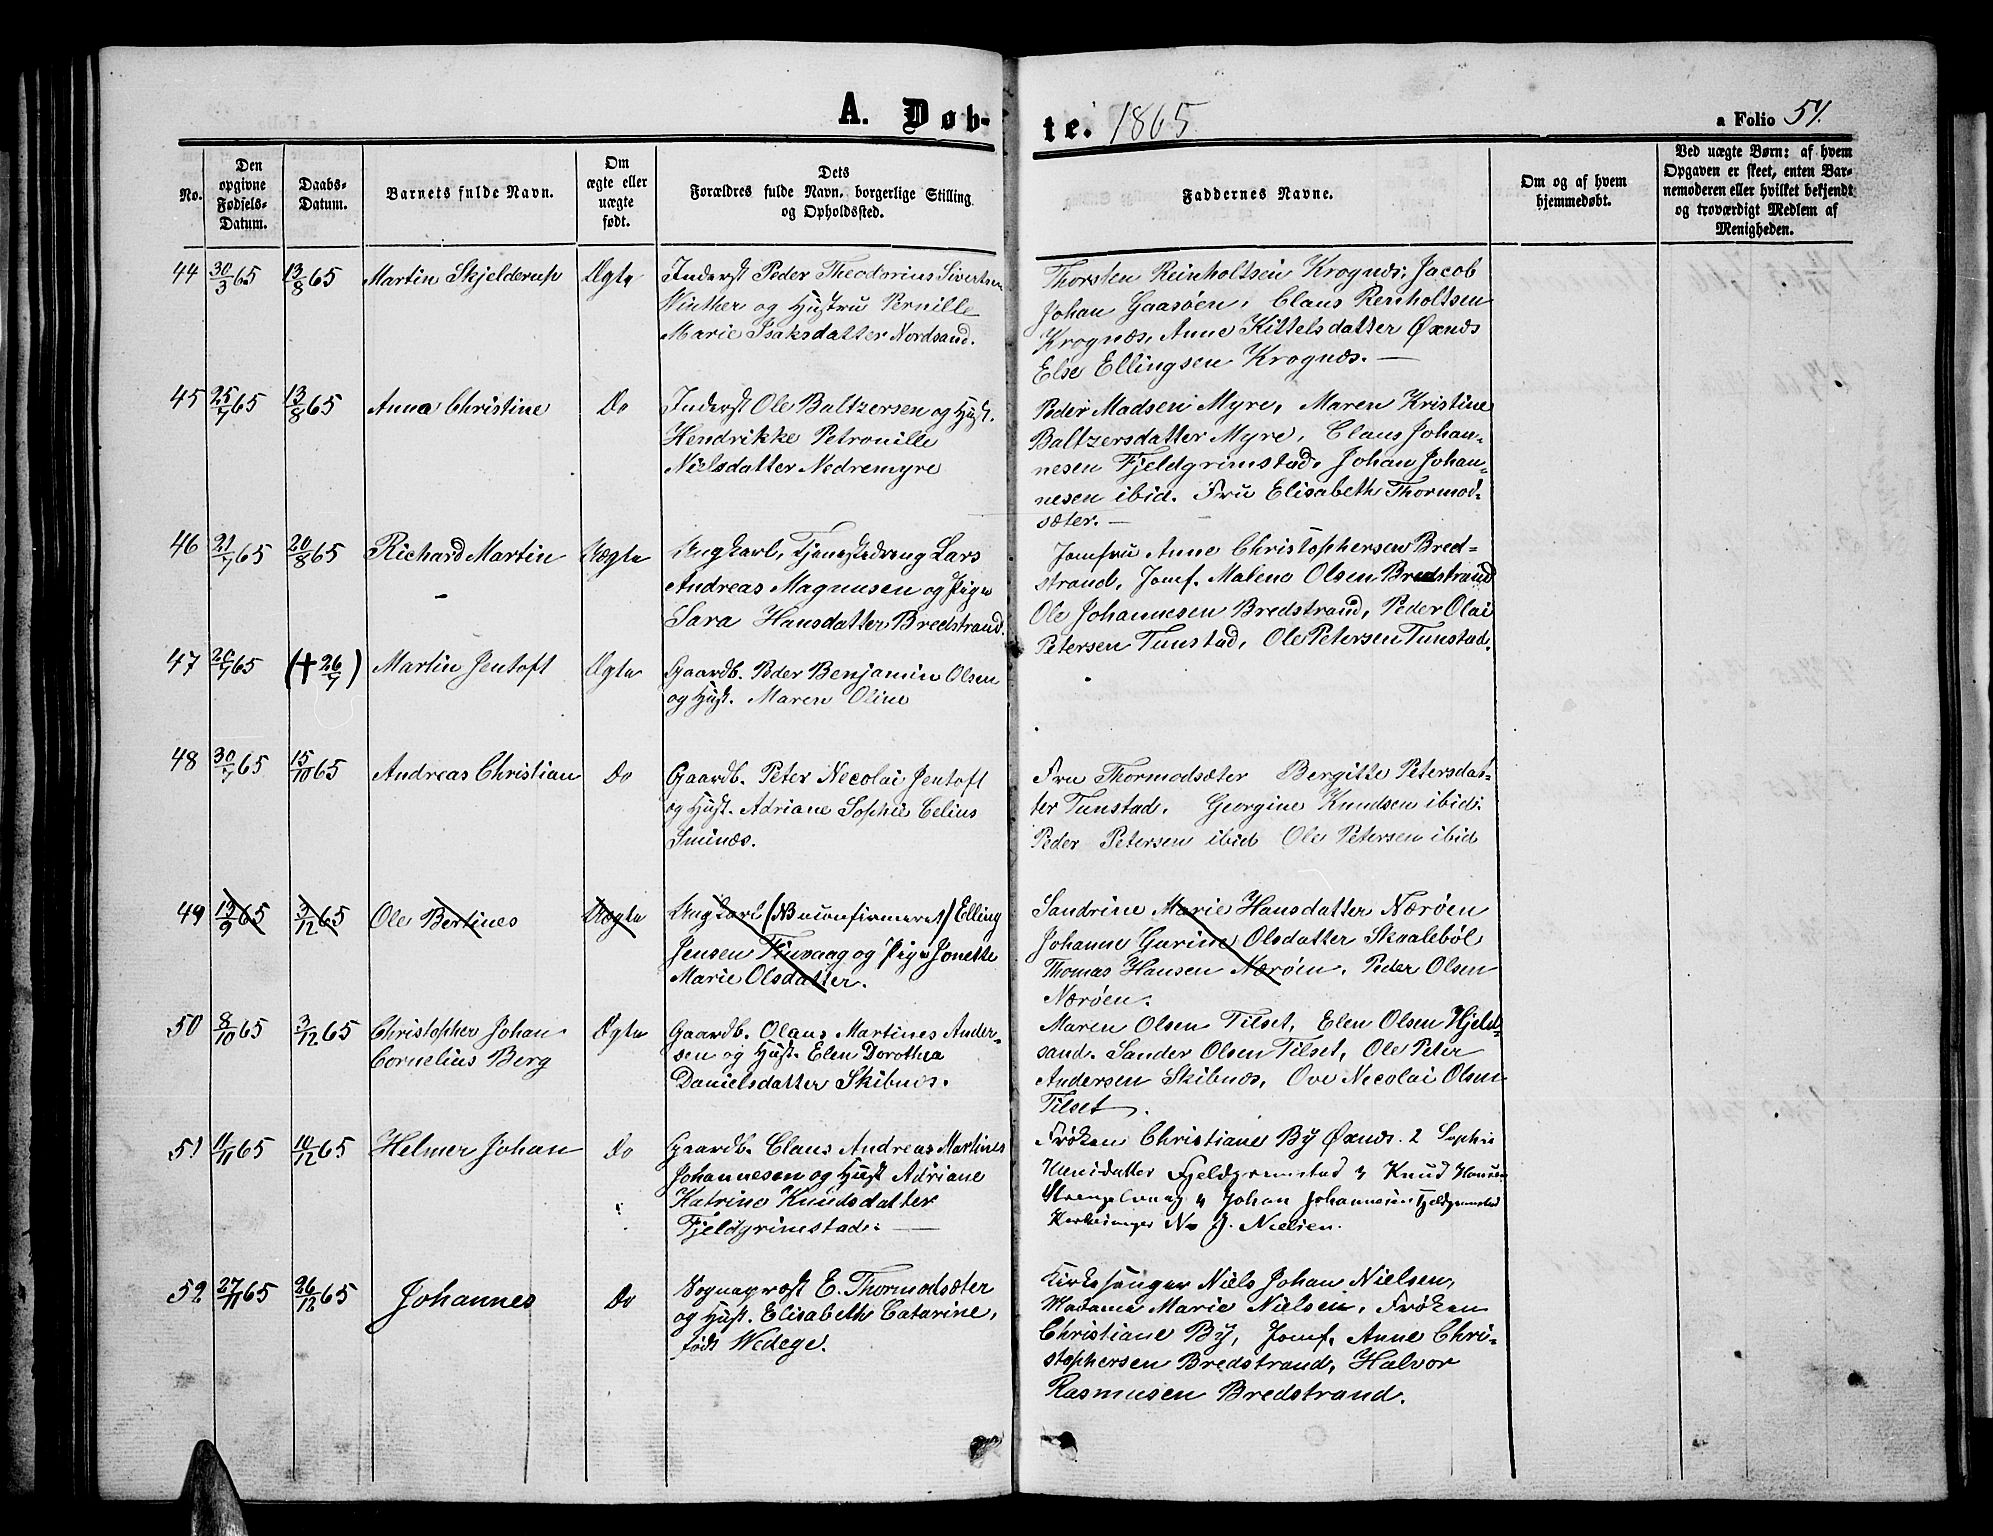 A. Døb-
te. 1865.
a Folio 51.
No.
Den
opgivne
Fødsels-
Datum.
Daabs-
Datum.
Barnets fulde Navn.
Om
ægte eller
uægte
født.
Dets
Forældres fulde Navn, borgerlige Stilling
og Opholdssted.
Faddernes Navne.
Om og af hvem
hjemmedøbt.
Ved uægte Børn: af hvem
Opgaven er skeet, enten Bar-
nemoderen eller hvilket bekjendt
og troværdigt Medlem af
Menigheden.
44 30/3 65 13/8 65 Martin Skjelderup Ægte
Inderst Peder Theodorius Sivertsen
Winther og Hustru Pernille
Marie Isaksdatter Nordsand.
Thorsten Reinholtsen Krognæs, Jacob
Johan Gaasöen, Claus Renholtsen
Krognæs, Anne Kittelsdatter Øxnæs
Else Ellingsen Krognæs. —
45 25/7 65 13/8 65 Anna Christine Do
Inderst Ole Baltzersen og Hust.
Hendrikke Petronille
Nielsdatter Nedremyre
Peder Madsen Myre, Maren Kristine
Baltzersdatter Myre, Claus Johan-
nesen Fjeldgrimstad, Johan Johan-
nesen ibid. Fru Elisabeth Thormod-
sæter. —
46 21/7 65 20/8 65 Richard Martin Uægte
Ungkarl, Tjenestedreng Lars
Andreas Magnusen og Pige
Sara Hansdatter Bredstrand.
Jomfru Anne Christophersen Bred-
strand, Jomf. Malene Olsen Bredstrand
Ole Johannesen Bredstrand, Peder Olai
Petersen Tunstad, Ole Petersen Tunstad.
47 20/7 65 († 26/7) Martin Jentoft Ægte
Gaardb. Peder Benjamin Olsen
og Hust. Maren Oline
48 30/7 65 15/10 65 Andreas Christian Do
Gaardb. Peter Necolai Jentoft
og Hust. Adriane Sophie Celius
Sminæs.
Fru Thormodsæter Bergitte Petersdat-
ter Tunstad, Georgine Knudsen ibid.
Peder Petersen ibid Ole Petersen ibid
49 13/9 65 3/12 65 Ole Bertines Uægte
Ungkarl (NB uconfirmeret) Elling
Jensen Tinvaag og Pige Jonette
Marie Olsdatter.
Sandrine Marie Hansdatter Næröen
Johanne Gurine Olsdatter Skaaleböl
Thomas Hansen Næröen, Peder Olsen
Næröen.
50 8/10 65 3/12 65 Christopher Johan Ægte
Cornelius Berg
Gaardb. Olaus Martines Ander-
sen og Hust. Elen Dorothea
Danielsdatter Skibnæs.
Maren Olsen Tilset, Elen Olsen Hjeld-
sand. Sander Olsen Tilset, Ole Peter
Andersen Skibnæs, Ove Necolai Olsen
Tilset.
51 11/11 65 10/12 65 Helmer Johan Do
Gaardb. Claus Andreas Martines
Johannesen og Hust Adriane
Katrine Knudsdatter
Fjeldgrimstad. —
Frøken Christiane By Øxnæs. 2 Sophie
Fjeldgrimstad 3 Knud Hansen
Strengelvaag 4 Johan Johannesen Fjeldgrimstad
Kirkesanger N. J. Nielsen.
52 27/11 65 26/12 65 Johannes Do
Sogneprest E. Thormodsæter
og Hust. Elisabeth Catarine,
født Wedege.
Kirkesanger Niels Johan Nielsen,
Madame Marie Nielsen, Frøken
Christiane By, Jomf. Anne Chri-
stophersen Bredstrand, Halvor
Rasmusen Bredstrand.